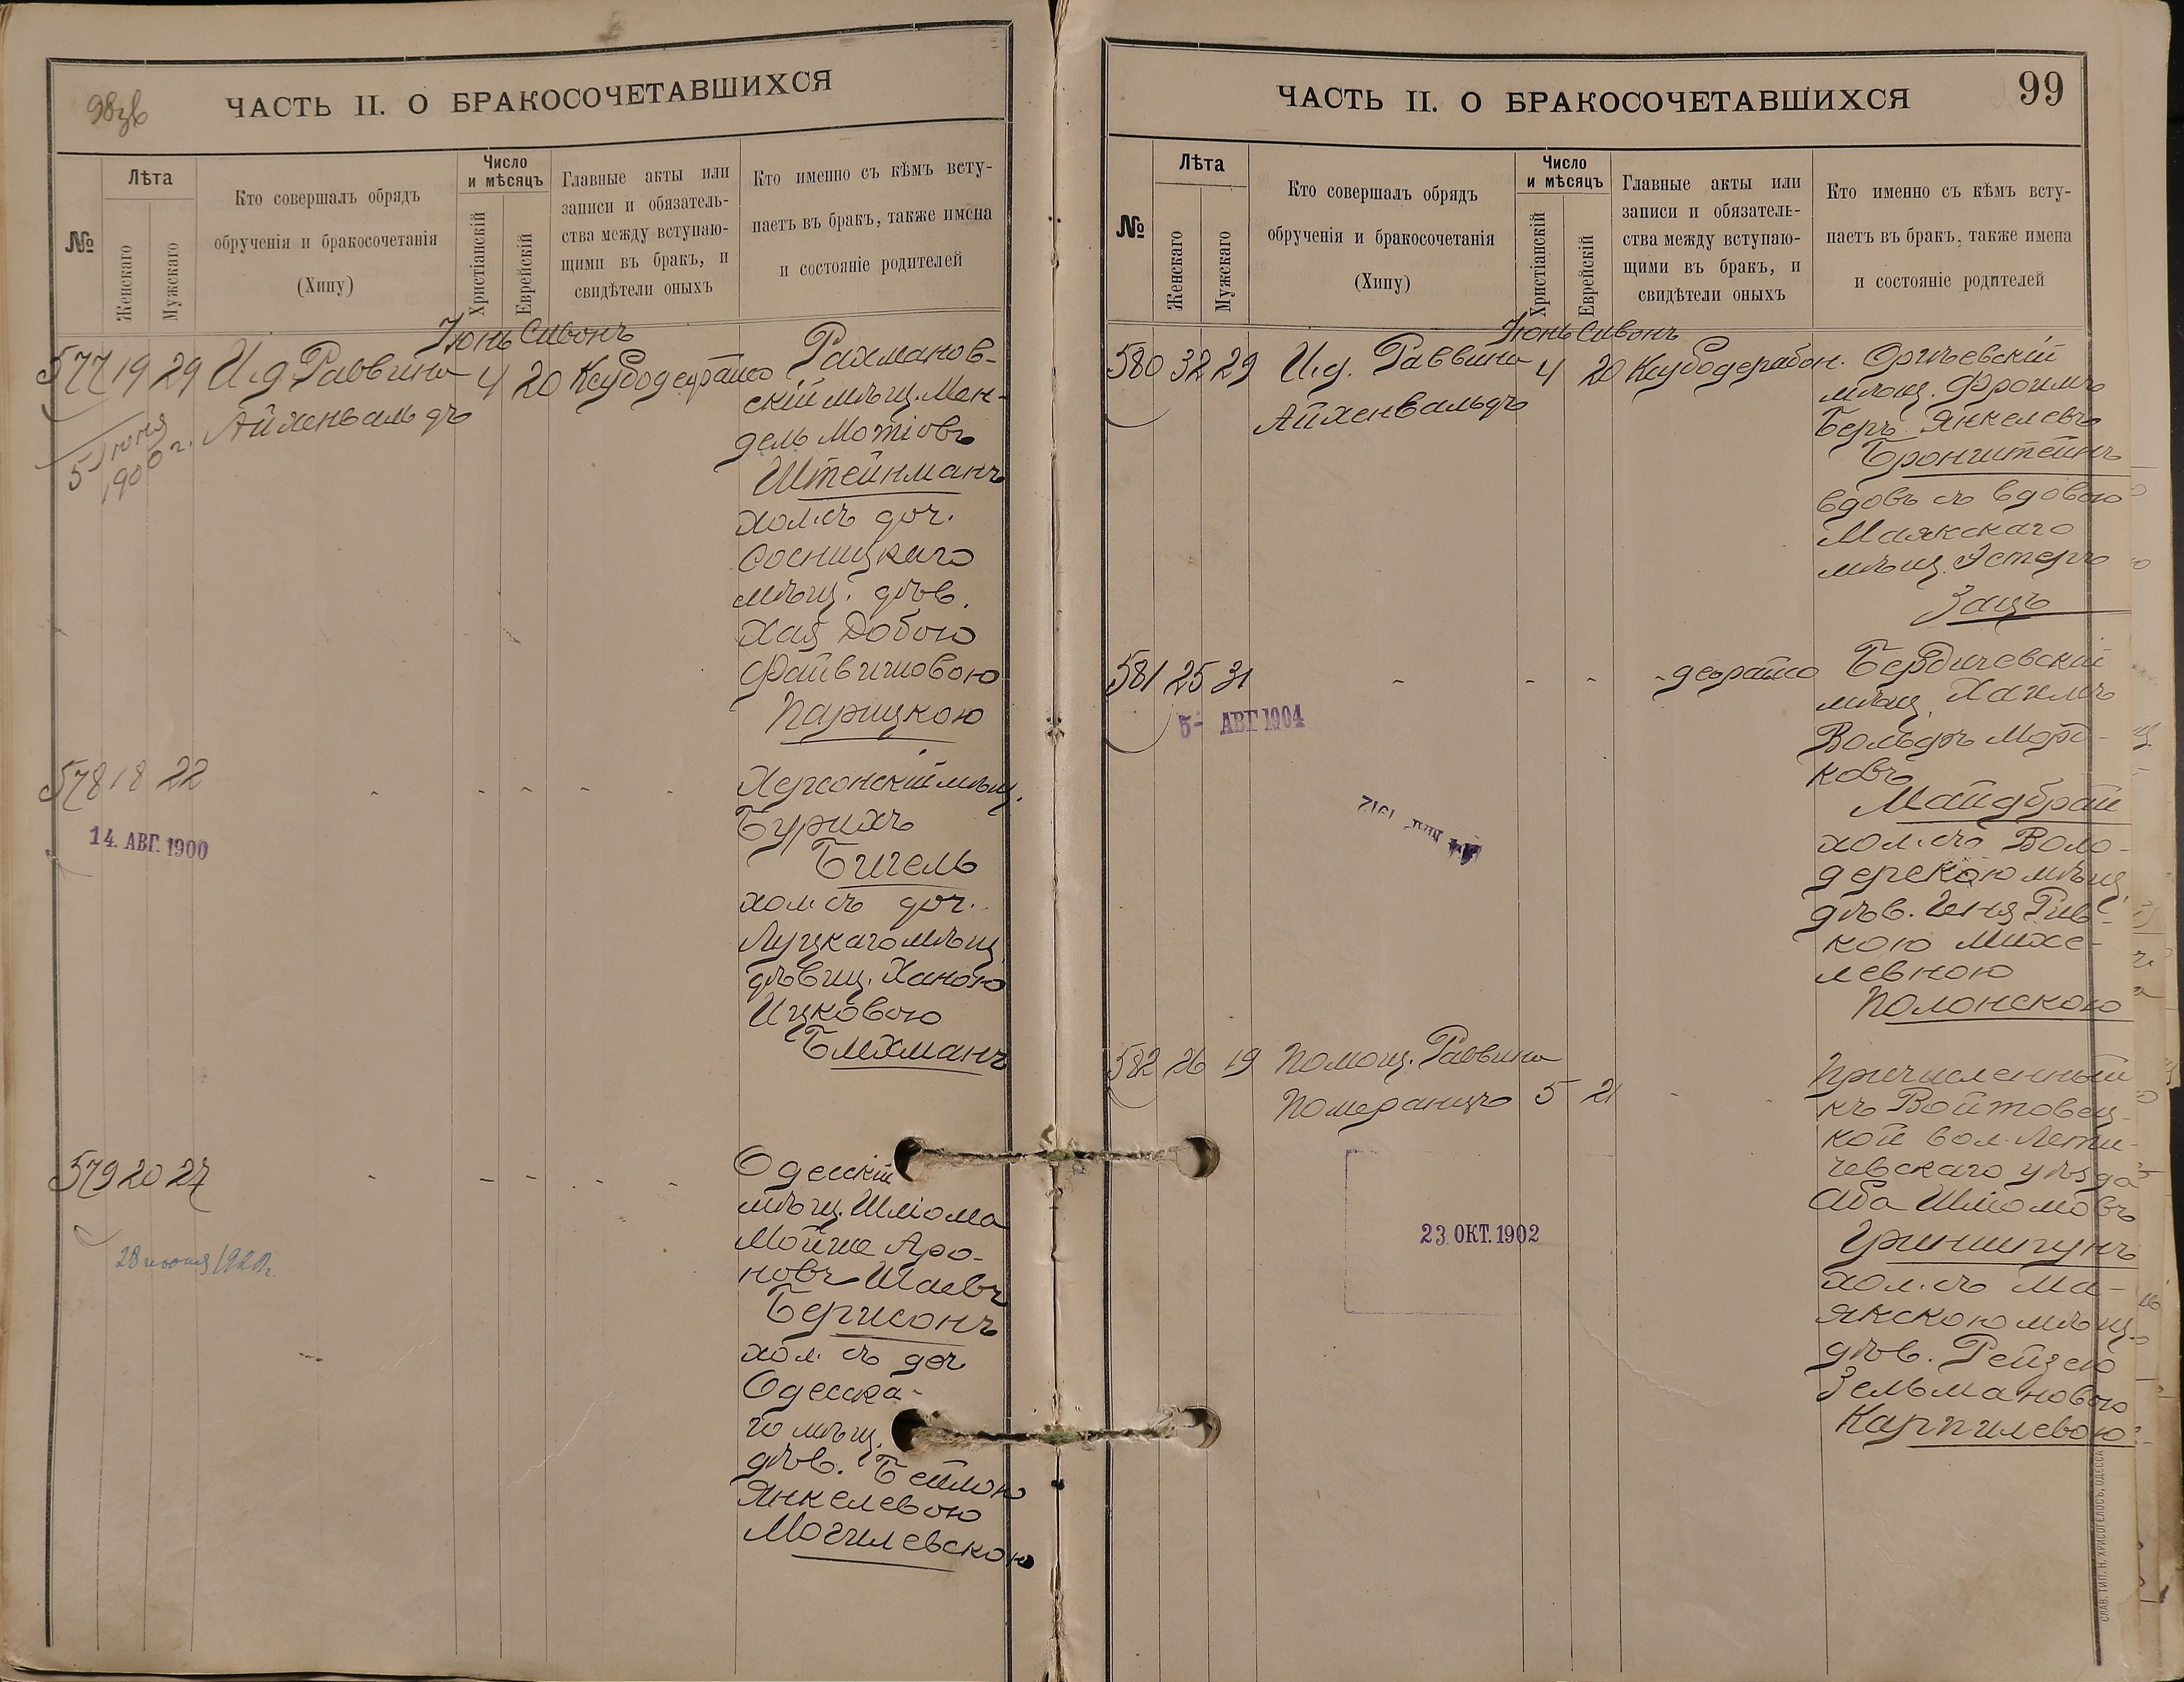 98зв
ЧАСТЬ II. О БРАКОСОЧЕТАВШИХСЯ
№
Лѣта
Женскаго
Мужскаго
Кто совершалъ обрядъ
обрученія и бракосочетанія
(Хипу)
Число
и мѣсяцъ
Христіанскій
Еврейскій
Главные акты или
записи и обязатель-
ства между вступаю-
щими въ бракъ, и
свидѣтели оныхъ
Кто именно съ кѣмъ всту-
паетъ въ бракъ, также имена
и состояніе родителей
Іюнь Сивонъ
577 19 29 И.д. Раввина 4 20
Айхенвальдъ
5 Іюня
1906 г.
Рахманов-
скій мѣщ. Мен-
дель Мотіовъ
Штейнманъ
хол. съ доч.
Сосницкаго
мѣщ. дѣв.
Хая Добою
Файвишовою
Парицкою
578 18 22 - - - - -
14. АВГ. 1900
Херсонскій мѣщ.
Бурихъ
Бигель
хол. съ доч.
Луцкаго мѣщ.
дѣвиц. Ханою
Ицковою
Блехманъ
579 20 27 - - - - - -
Одесскій
мѣщ. Шліома
Мойше Аро-
новъ Шаевъ
Берисонъ
хол. съ доч
Одесска-
го мѣщ.
дѣв. Бейлою
Янкелевою
Могилевскою
ЧАСТЬ II. О БРАКОСОЧЕТАВШИХСЯ
99
№
Лѣта
Женскаго
Мужскаго
Кто совершалъ обрядъ
обрученія и бракосочетанія
(Хипу)
Число
и мѣсяцъ
Христіанскій
Еврейскій
Главные акты или
записи и обязатель-
ства между вступаю-
щими въ бракъ, и
свидѣтели оныхъ
Кто именно съ кѣмъ всту-
паетъ въ бракъ, также имена
и состояніе родителей
Іюнь Сивонъ
580 32 29 И.д. Раввина 4 20
Айхенвальдъ
мѣщ. Фроимъ
Беръ Янкелевъ
Бронштейнъ
вдовъ съ вдовою
Маякскаго
мѣщ. Эстеръ
Зацъ
581 25 31 - - - -
5- АВГ 1904
Бердичевскій
мѣщ. Хаимъ
Вольфъ Морд-
ковъ
Майдбрай
хол. съ Воло-
дерскою мѣщ.
дѣв. Геня Рив-
кою Михе-
левною
Полонскою
582 26 19 Помощ. Раввина
Померанцъ 5 21 - -
23. ОКТ. 1902
Причисленный
къ Войтовец-
кой вол. Лети-
чевскаго уѣзда
Аба Шліомовъ
Гриншпунъ
хол. съ Ма-
якскою мѣщ.
дѣв. Рейзею
Зельмановою
Карпилевою
СЛАВ. ТИП. Н. ХРИСОГЕЛОСЪ, ОДЕССА